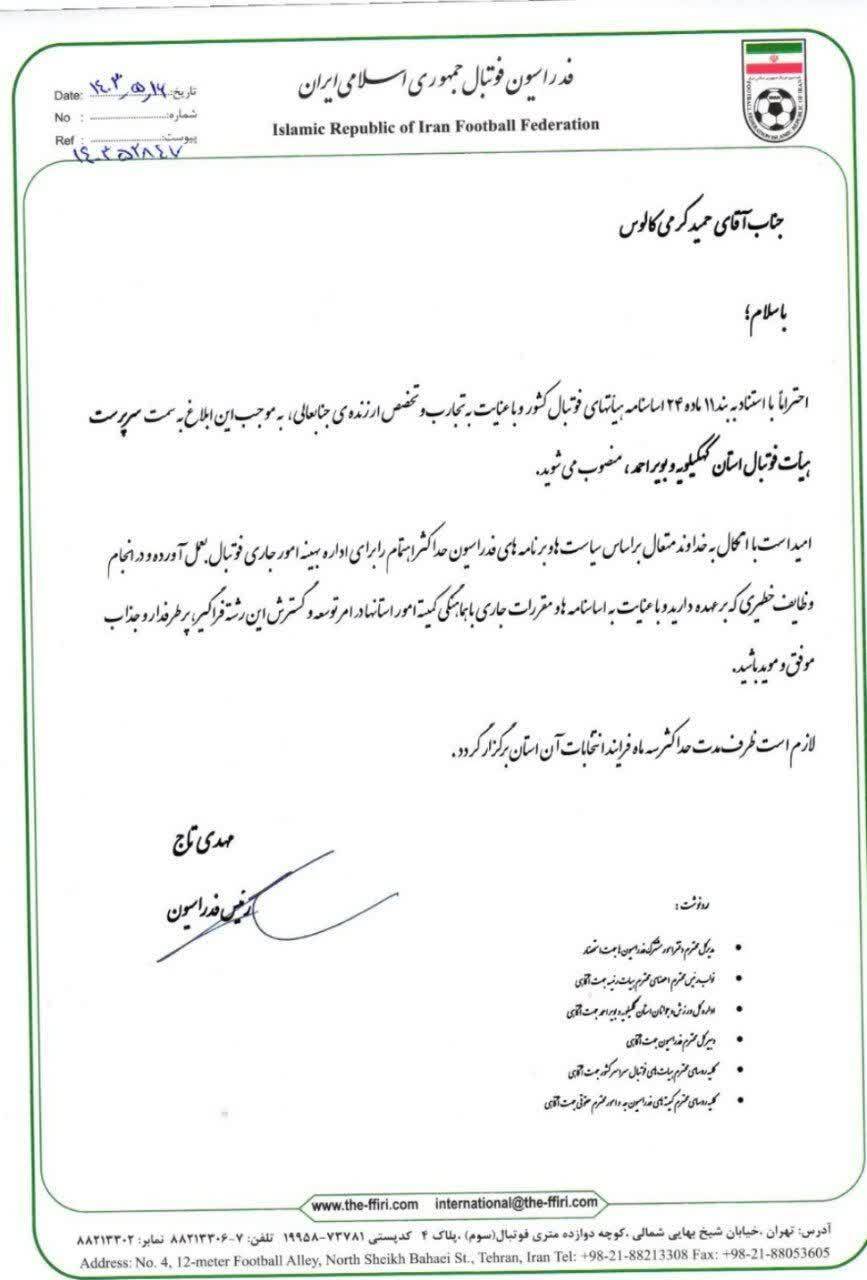 فدراسیون فوتبال جمهوری اسلامی ایران
Islamic Republic of Iran Football Federation
Date: ۱۴۰۳,۵,۱۶ تاریخ:
No : شماره:
Ref : پیوست:
۱۴۰۳۵۲۸۴۷
جناب آقای حمید کرمی کالوس
باسلام؛
احتراماً با استناد به بند ۱۱ ماده ۲۴ اساسنامه هیأتهای فوتبال کشور و با عنایت به تجارب و تخصص ارزنده ی جنابعالی، به موجب این ابلاغ به سمت سرپرست
هیأت فوتبال استان کهگیلویه و بویراحمد، منصوب می شوید.
امید است با اتکال به خداوند متعال براساس سیاست ها و برنامه های فدراسیون حداکثر اهتمام را برای اداره بهینه امور جاری فوتبال بعمل آورده و در انجام
وظایف خطیری که بر عهده دارید و با عنایت به اساسنامه ها و مقررات جاری با هماهنگی کمیته امور استانها در امر توسعه و گسترش این رشته فراگیر، پرطرفدار و جذاب
موفق و موید باشید.
لازم است ظرف مدت حداکثر سه ماه فرایند انتخابات آن استان برگزار گردد.
مهدی تاج
رئیس فدراسیون
رونوشت:
• مدیرکل محترم دفتر امور مشترک فدراسیون ها جهت استحضار
• نواب رئیس محترم و اعضای محترم هیات رئیسه جهت آگاهی
• اداره کل ورزش و جوانان استان کهگیلویه و بویراحمد جهت آگاهی
• دبیرکل محترم فدراسیون جهت آگاهی
• کلیه روسای محترم هیات های فوتبال سراسر کشور جهت آگاهی
• کلیه روسای محترم کمیته های فدراسیون و امور محترم حقوقی جهت آگاهی
www.the-ffiri.com international@the-ffiri.com
آدرس: تهران ،خیابان شیخ بهایی شمالی ،کوچه دوازده متری فوتبال(سوم) ،پلاک ۴ کدپستی ۷۳۷۸۱-۱۹۹۵۸ تلفن: ۷-۸۸۲۱۳۳۰۶ نمابر: ۸۸۲۱۳۳۰۲
Address: No. 4, 12-meter Football Alley, North Sheikh Bahaei St., Tehran, Iran Tel: +98-21-88213308 Fax: +98-21-88053605